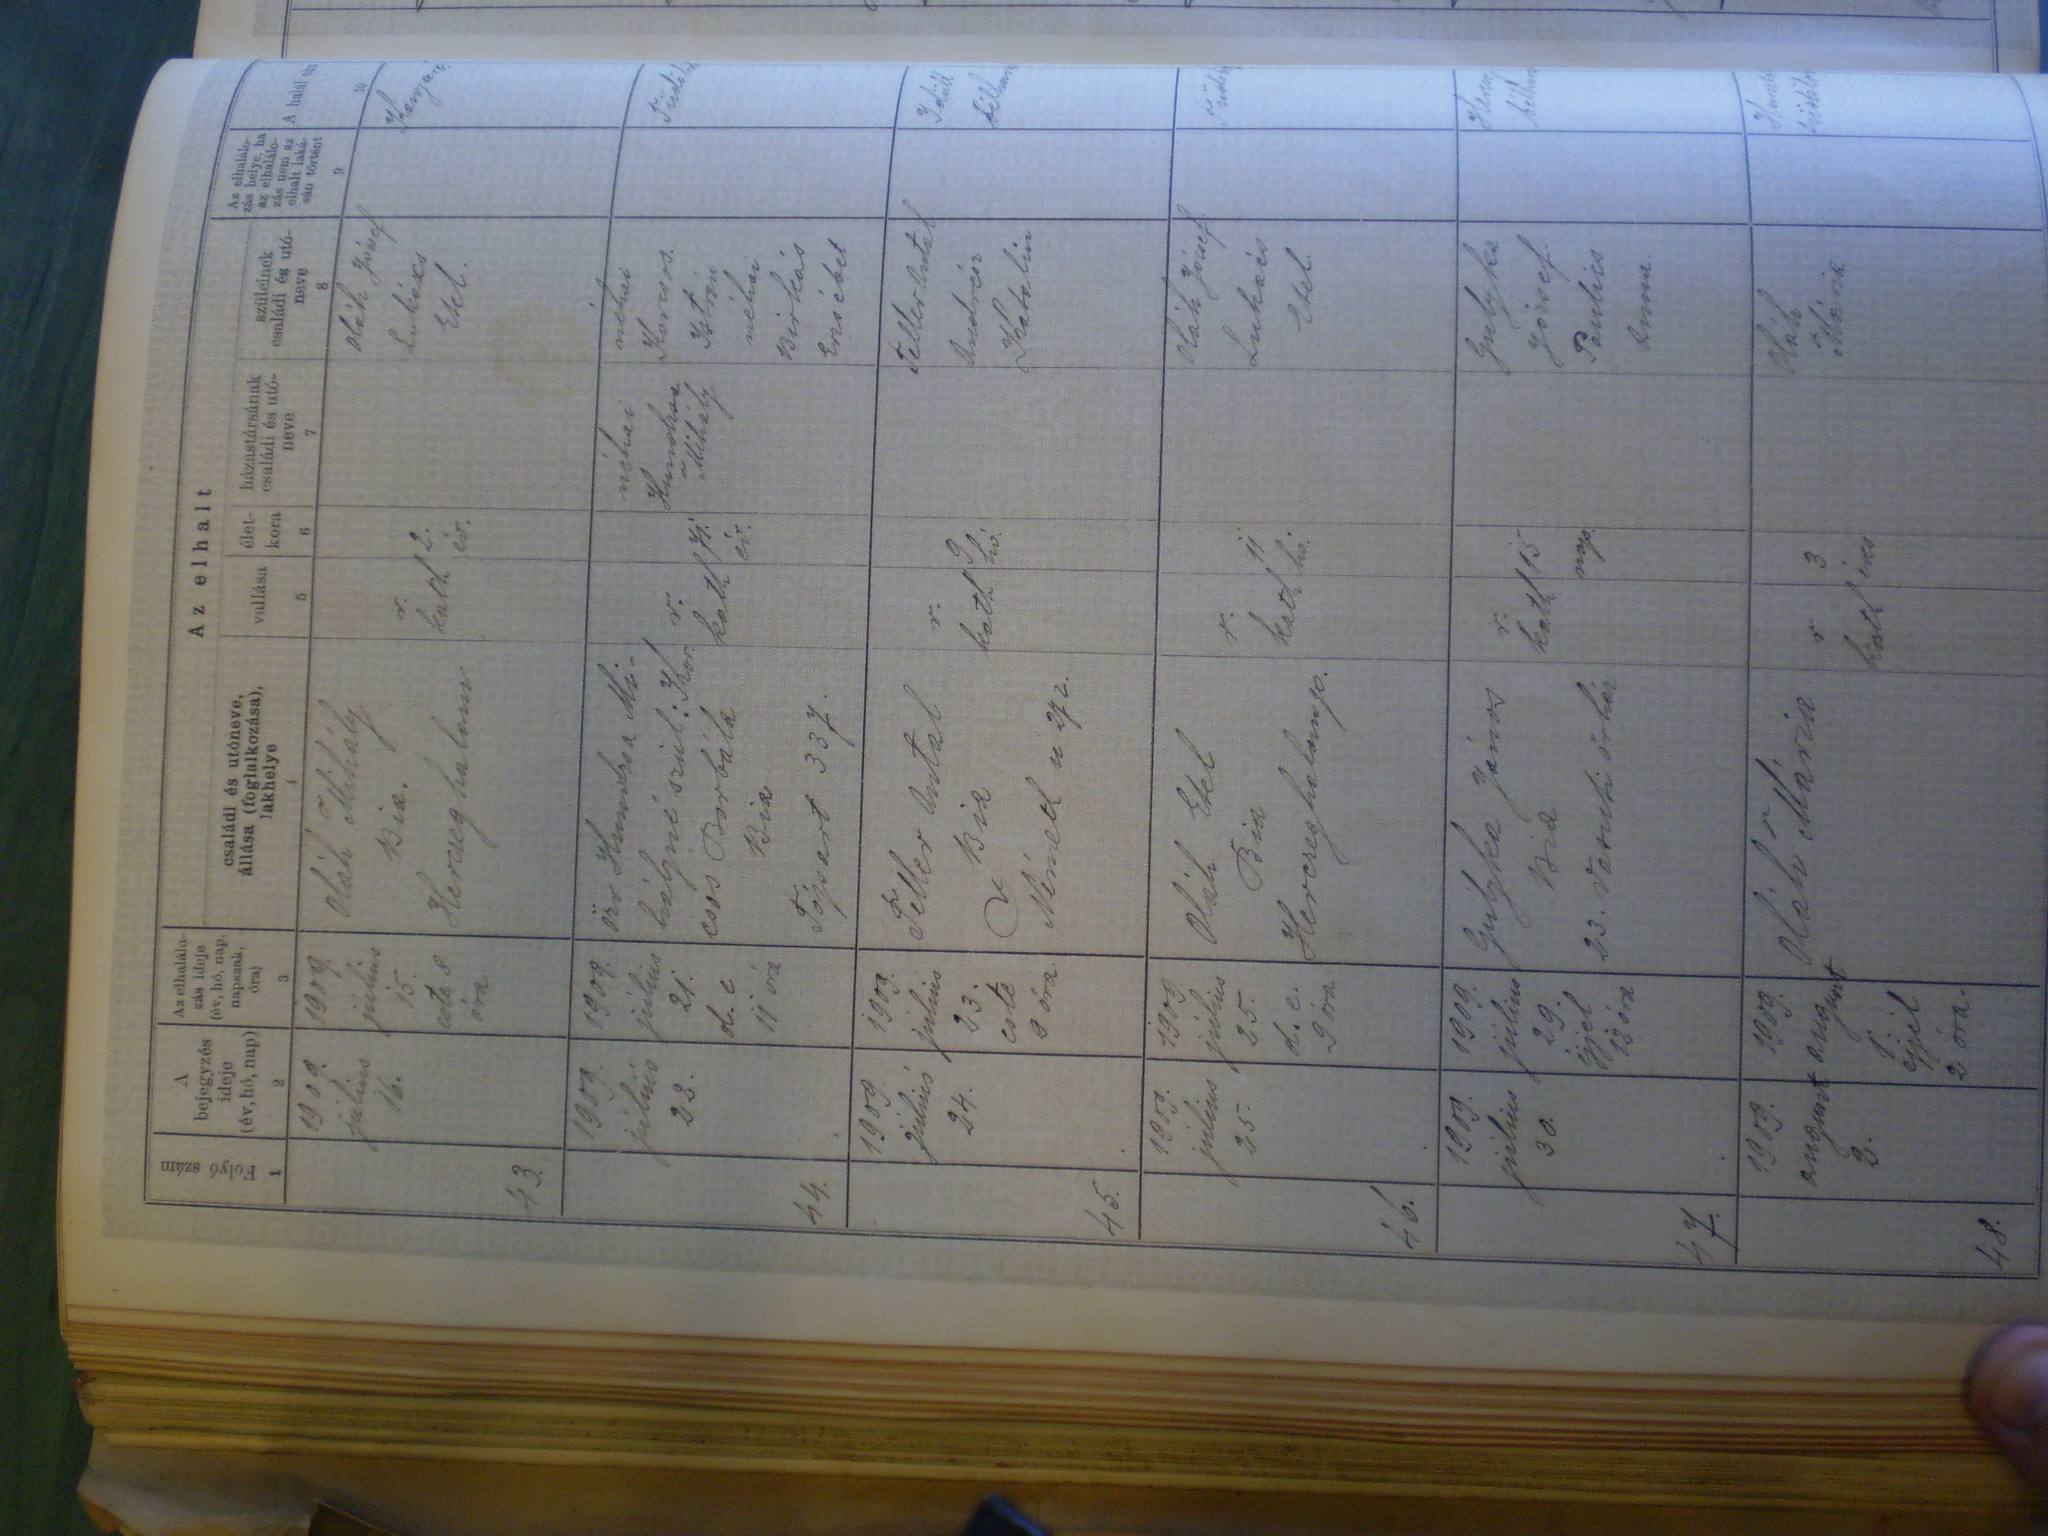 Az elhalt
Folyó szám
A bejegyzés ideje (év, hó, nap)
Az elhalálo-
zás ideje
(év, hó, nap,
napszak,
óra)
családi és utóneve,
állása (foglalkozása),
lakhelye
vallása
élet-
kora
házastársának
családi és utó-
neve
szüleinek
családi és utó-
neve
Az elhalálo-
zás helye, ha
az elhalálo-
zás nem az
elhalt laká-
sán történt
A halál
1
2
3
4
5
6
7
8
9
10
43.
1909.
július
16.
1909.
július
15.
este 8
óra
Oláh Mihály
Bia.
Herceghalom
r.
kath
2.
év.
Oláh József
Lukács
Etel.
44.
1909.
július
22.
1909.
július
21.
d. e
11 óra
özv Hunvalsa Mi-
hályné szül: Kor-
csos Borbála
Bia
Tópart 337.
r.
kath
71.
év.
néhai
Mihály
néhai
Korcsos
István
néhai
Birkás
Erzsébet
45.
1909.
július
24.
1909.
július
23.
este
9 óra
Feller Antal
Bia
Német u 272.
r.
kath
9
hó.
Feller Antal
Andréz
Katalin
46.
1909.
július
25.
1909.
július
25.
d. e.
9 óra
Oláh Etel
Bia
Herczeghalomp.
r.
kath
11
hó.
Oláh József
Lukács
Etel.
47.
1909.
július
30.
1909.
július
29.
éjjel
12 óra
Gulyka János
Bia
23. Vasuti őrház
r.
kath
15
nap.
Gulyka
József.
Paulics
Anna.
48.
1909.
august
2.
1909.
august
éjjel
2 óra.
Oláh Mária
r
kath
3
Oláh
Mária